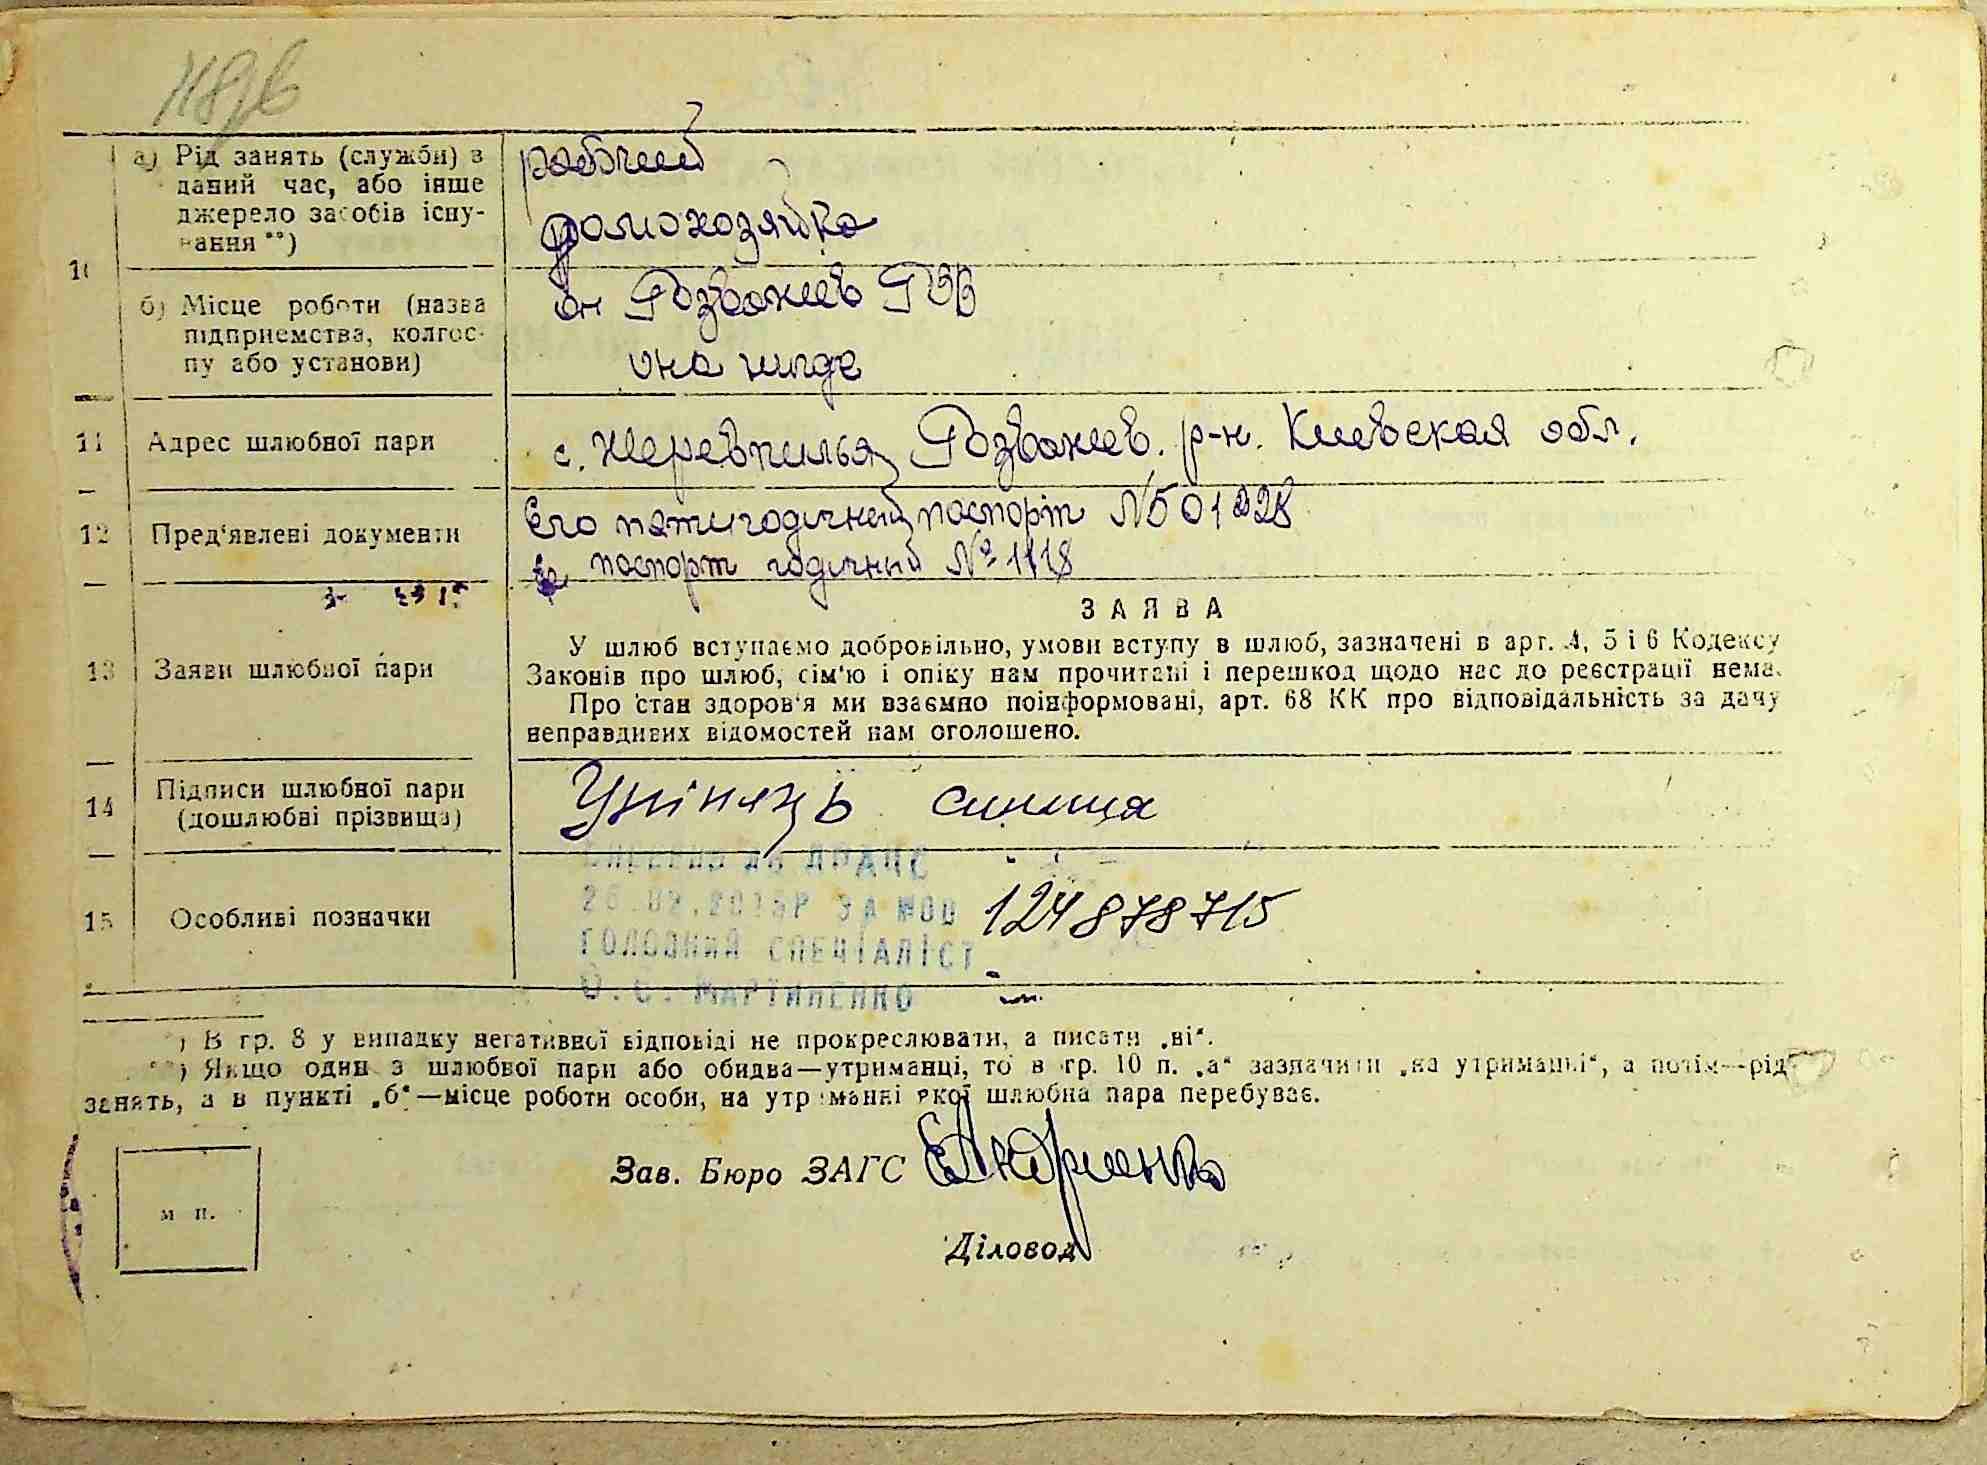 а) Рід занять (служби) в
даний час, або інше
джерело засобів існу-
вання **)
рабочий
домохозяйка
10
б) Місце роботи (назва
підприємства, колгос-
пу або установи)
он Розважев
она нигде
11 Адрес шлюбної пари
с. Жеревпилья Розважев. р-н. Киевская обл.
12 Пред'явлені документи
Его пятигодичный паспорт №
ее паспорт годичный № 1118
ЗАЯВА
13 Заяви шлюбної пари
У шлюб вступаємо добровільно, умови вступу в шлюб, зазначені в арт. 4, 5 і 6 Кодексу
Законів про шлюб, сім'ю і опіку нам прочитані і перешкод щодо нас до реєстрації нема.
Про стан здоров'я ми взаємно поінформовані, арт. 68 КК про відповідальність за дачу
неправдивих відомостей нам оголошено.
14 Підписи шлюбної пари
(дошлюбні прізвища)
синиця
15 Особливі позначки
внесено до ДРАЦС
ЗА №00 124878715
ГОЛОВНИЙ СПЕЦІАЛІСТ
О.С. МАРТИНЕНКО
*) В гр. 8 у випадку негативної відповіді не прокреслювати, а писати „ні“.
**) Якщо один з шлюбної пари або обидва—утриманці, то в гр. 10 п. „а“ зазначити „на утриманні“, а потім—рід
занять, а в пункті „б“—місце роботи особи, на утриманні якої шлюбна пара перебуває.
Зав. Бюро ЗАГС
м п.
Діловод